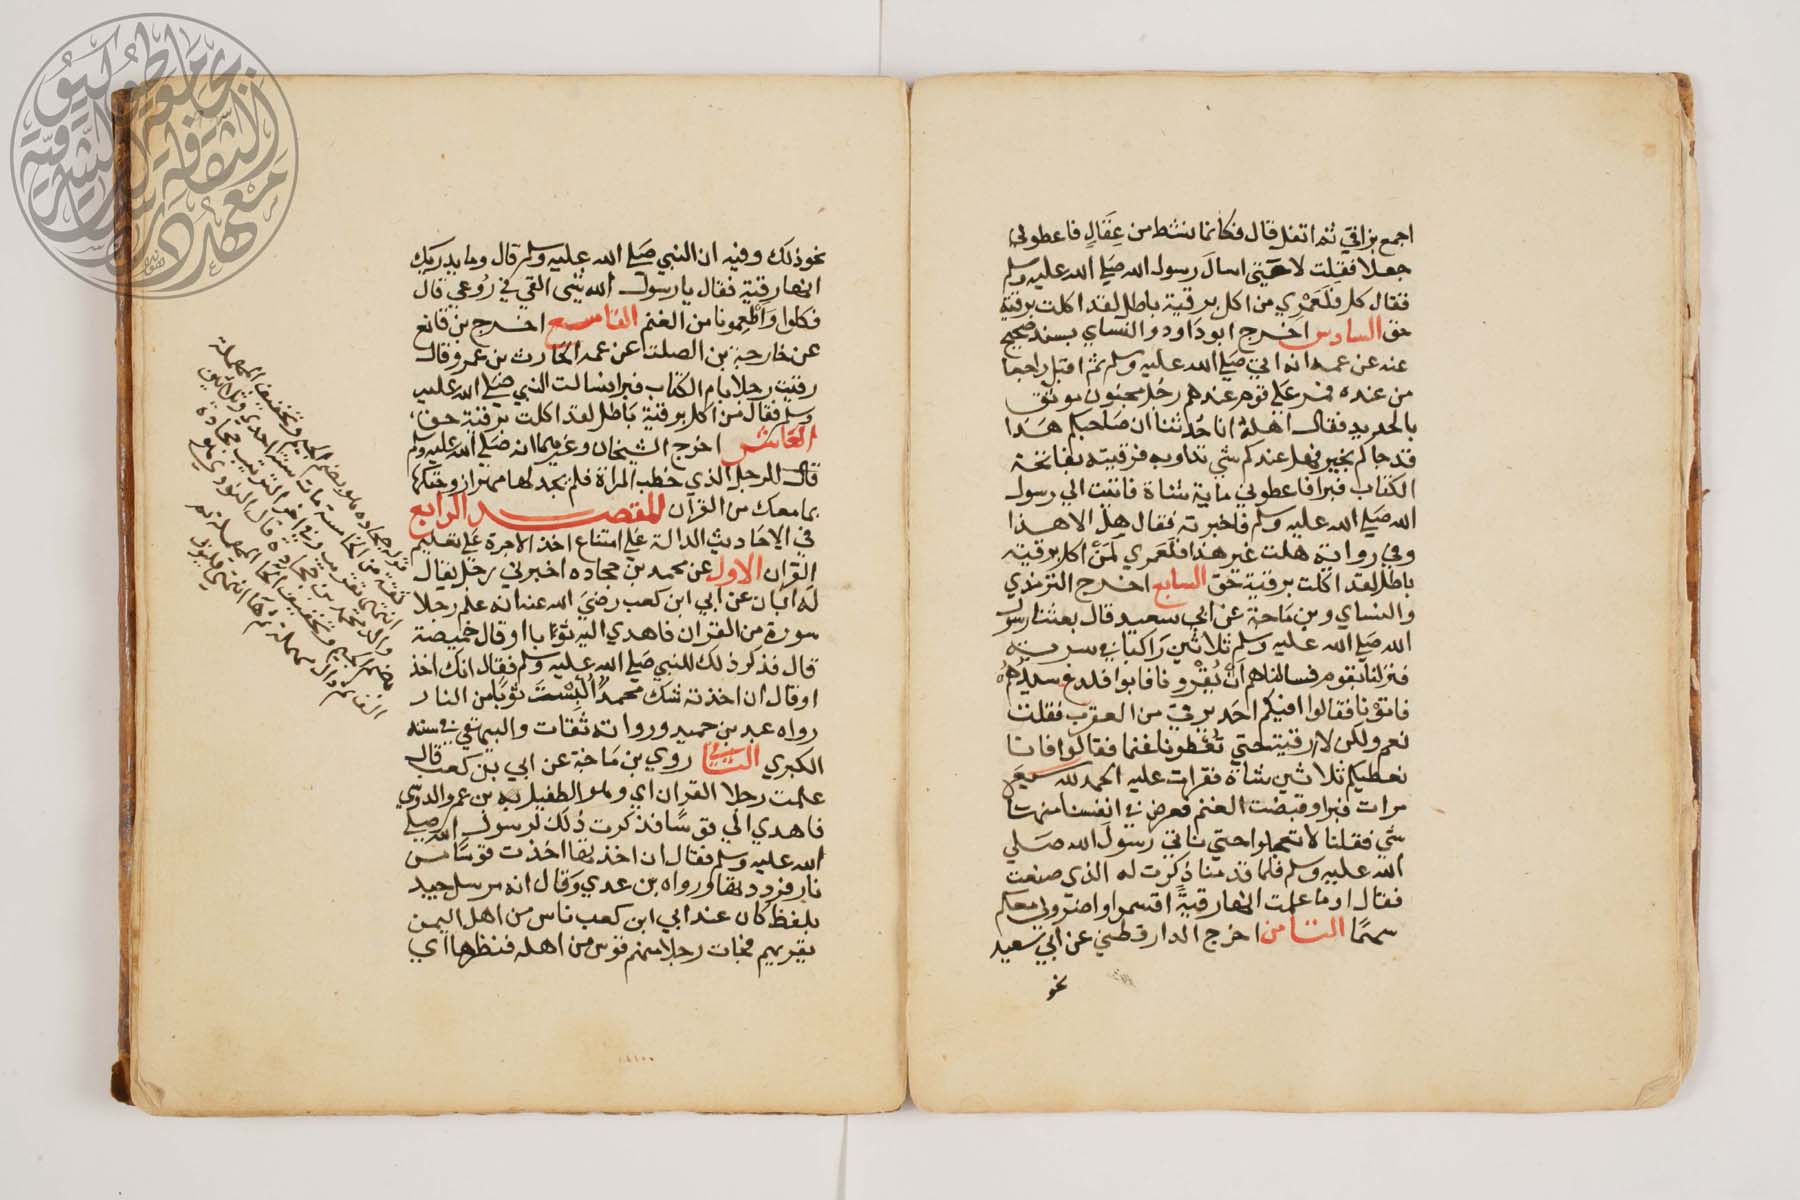 اجمع بزاقي ثم اتفل قال فكانما نشط من عقال فاعطوني
جعلا فقلت لا حتى اسال رسول الله صلي الله عليه وسلم
فقال كل فلعمري من اكل برقية باطل لقد اكلت برقية
حق السادس اخرج ابو داود والنساي بسند صحيح
عنه عن عمه انه اتي صلي الله عليه وسلم ثم اقبل راجعا
من عنده فمر علي قوم عندهم رجل مجنون موثق
بالحديد فقال اهله انا حدثنا ان صاحبكم هذا
قد جاكم بخير فهل عندكم شي تداويه فرقيته بفاتحة
الكتاب فبرا فاعطوني ماية شاة فاتيت الي رسول
الله صلي الله عليه وسلم فاخبرته فقال هل الا هذا
وفي رواية هل قلت غير هذا فلعمري لمن اكل برقية
باطل لقد اكلت برقية حق السابع اخرج الترمذي
والنساي وبن ماجة عن ابي سعيد قال بعثنا رسول
الله صلي الله عليه وسلم ثلاثين راكبا في سرية
فنزلنا بقوم فسالناهم ان يقرونا فابوا فلدغ سيدهم
فاتونا فقالوا افيكم احد يرقي من العقرب فقلت
نعم ولكن لا ارقيه حتي تعطونا غنما فقالوا فانا
نعطيكم ثلاثين شاة فقرات عليه الحمد لله سبع
مرات فبرا وقبضت الغنم فعرض في انفسنا منها
شي فقلنا لا تعجلوا حتي ناتي رسول الله صلي
الله عليه وسلم فلما قدمنا ذكرت له الذي صنعت
فقال او ما علمت انها رقية اقتسموا واضربوا لي معكم
سهما الثامن اخرج الدارقطني عن ابي سعيد
نحو
نحو ذلك وفيه ان النبي صلي الله عليه وسلم قال وما يدريك
انها رقية فقال يا رسول الله شي القي في روعي قال
فكلوا واطعمونا من الغنم التاسع اخرج بن قانع
عن خارجة بن الصلت عن عمه الحارث بن عمرو قال
رقيت رجلا بام الكتاب فبرا فسالت النبي صلي الله عليه
وسلم فقال من اكل برقية باطل لقد اكلت برقية حق
العاشر اخرج الشيخان وغيرهما انه صلي الله عليه وسلم
قال للرجل الذي خطب المراة فلم يجد لها مهرا زوجتكها
بما معك من القرآن المقصد الرابع
في الاحاديث الدالة علي امتناع اخذ الاجرة علي تعليم
القران الاول عن محمد بن جحاده اخبرني رجل يقال
له ابان عن ابي ابن كعب رضي الله عنه انه علم رجلا
سورة من القران فاهدي اليه ثوبا او قال خميصة
قال فذكر ذلك للنبي صلي الله عليه وسلم فقال انك اخذ
او قال ان اخذته شك محمد البست ثوبا من النار
رواه عبد بن حميد ورواته ثقات والبيهقي في سننه
الكبري الثاني روي بن ماجة عن ابي بن كعب قال
علمت رجلا القران اي وهو الطفيل بن عمرو الدوسي
فاهدي الي قوسا فذكرت ذلك لرسول الله صلي
الله عليه وسلم فقال ان اخذتها اخذت قوسا من
نار فرددتها ورواه بن عدي وقال انه مرسل جيد
بلفظ كان عند ابي ابن كعب ناس من اهل اليمن
يقريهم فجات رجلا منهم قوس من اهله فنظرها ابي
قوله جحاده هو بضم الجيم وتخفيف المهملة
ثقة من الخامسة مات سنة احدي وثلاثين